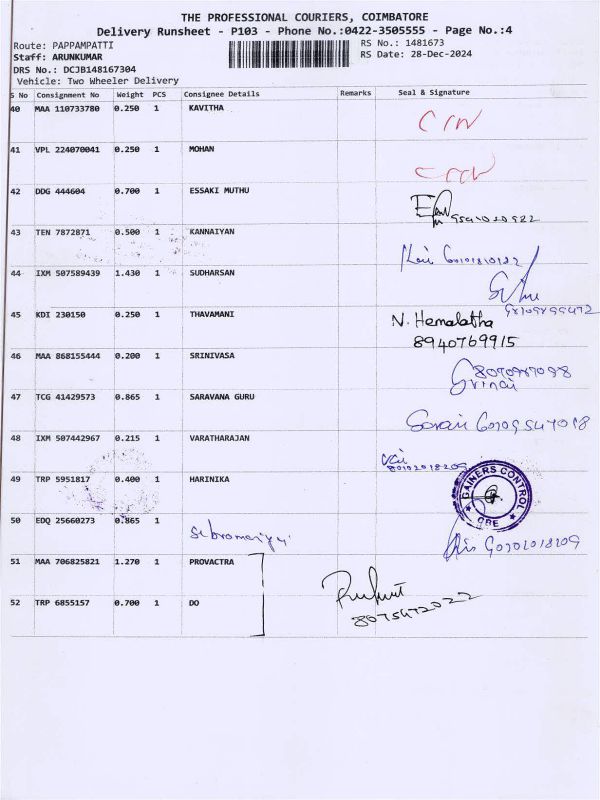 THE PROFESSIONAL COURIERS, COIMBATORE
Delivery Runsheet - P103 - Phone No.:0422-3505555 - Page No.:4
Route: PAPPAMPATTI RS No.: 1481673
Staff: ARUNKUMAR RS Date: 28-Dec-2024
DRS No.: DCJB148167304
Vehicle: Two Wheeler Delivery
S No Consignment No Weight PCS Consignee Details Remarks Seal & Signature
40 MAA 110733780 0.250 1 KAVITHA
41 VPL 224070041 0.250 1 MOHAN
42 DDG 444604 0.700 1 ESSAKI MUTHU
43 TEN 7872871 0.500 1 KANNAIYAN
44 IXM 507589439 1.430 1 SUDHARSAN
45 KDI 230150 0.250 1 THAVAMANI N. Hemalatha
8940769915
46 MAA 868155444 0.200 1 SRINIVASA
47 TCG 41429573 0.865 1 SARAVANA GURU
48 IXM 507442967 0.215 1 VARATHARAJAN
49 TRP 5951817 0.400 1 HARINIKA
GAINERS CONTROL
CBE
50 EDQ 25660273 0.865 1
51 MAA 706825821 1.270 1 PROVACTRA
52 TRP 6855157 0.700 1 DO
8075472022